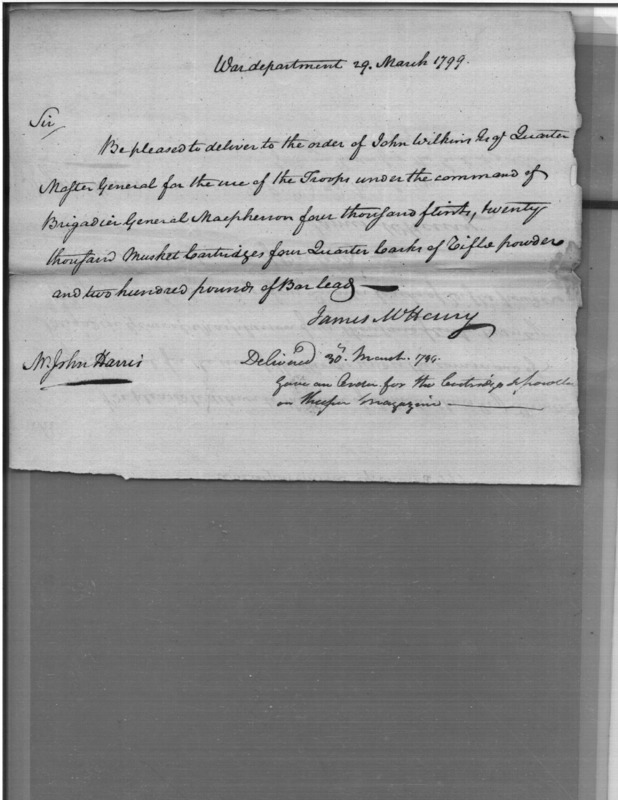 War department 29. March 1799.
Sir
Be pleased to deliver to the order of John Wilkins Esqr Quarter
Master General for the use of the Troops under the command of
Brigadier General Macpherson four thousand flints, twenty
thousand Musket Cartridges four Quarter Casks of Rifle powder
and two hundred pounds of Bar lead
James McHenry
Mr. John Harris
Delivered 30th. March. 1799.
Gave an Order for the Cartridges & powder
on Keeper Magazine